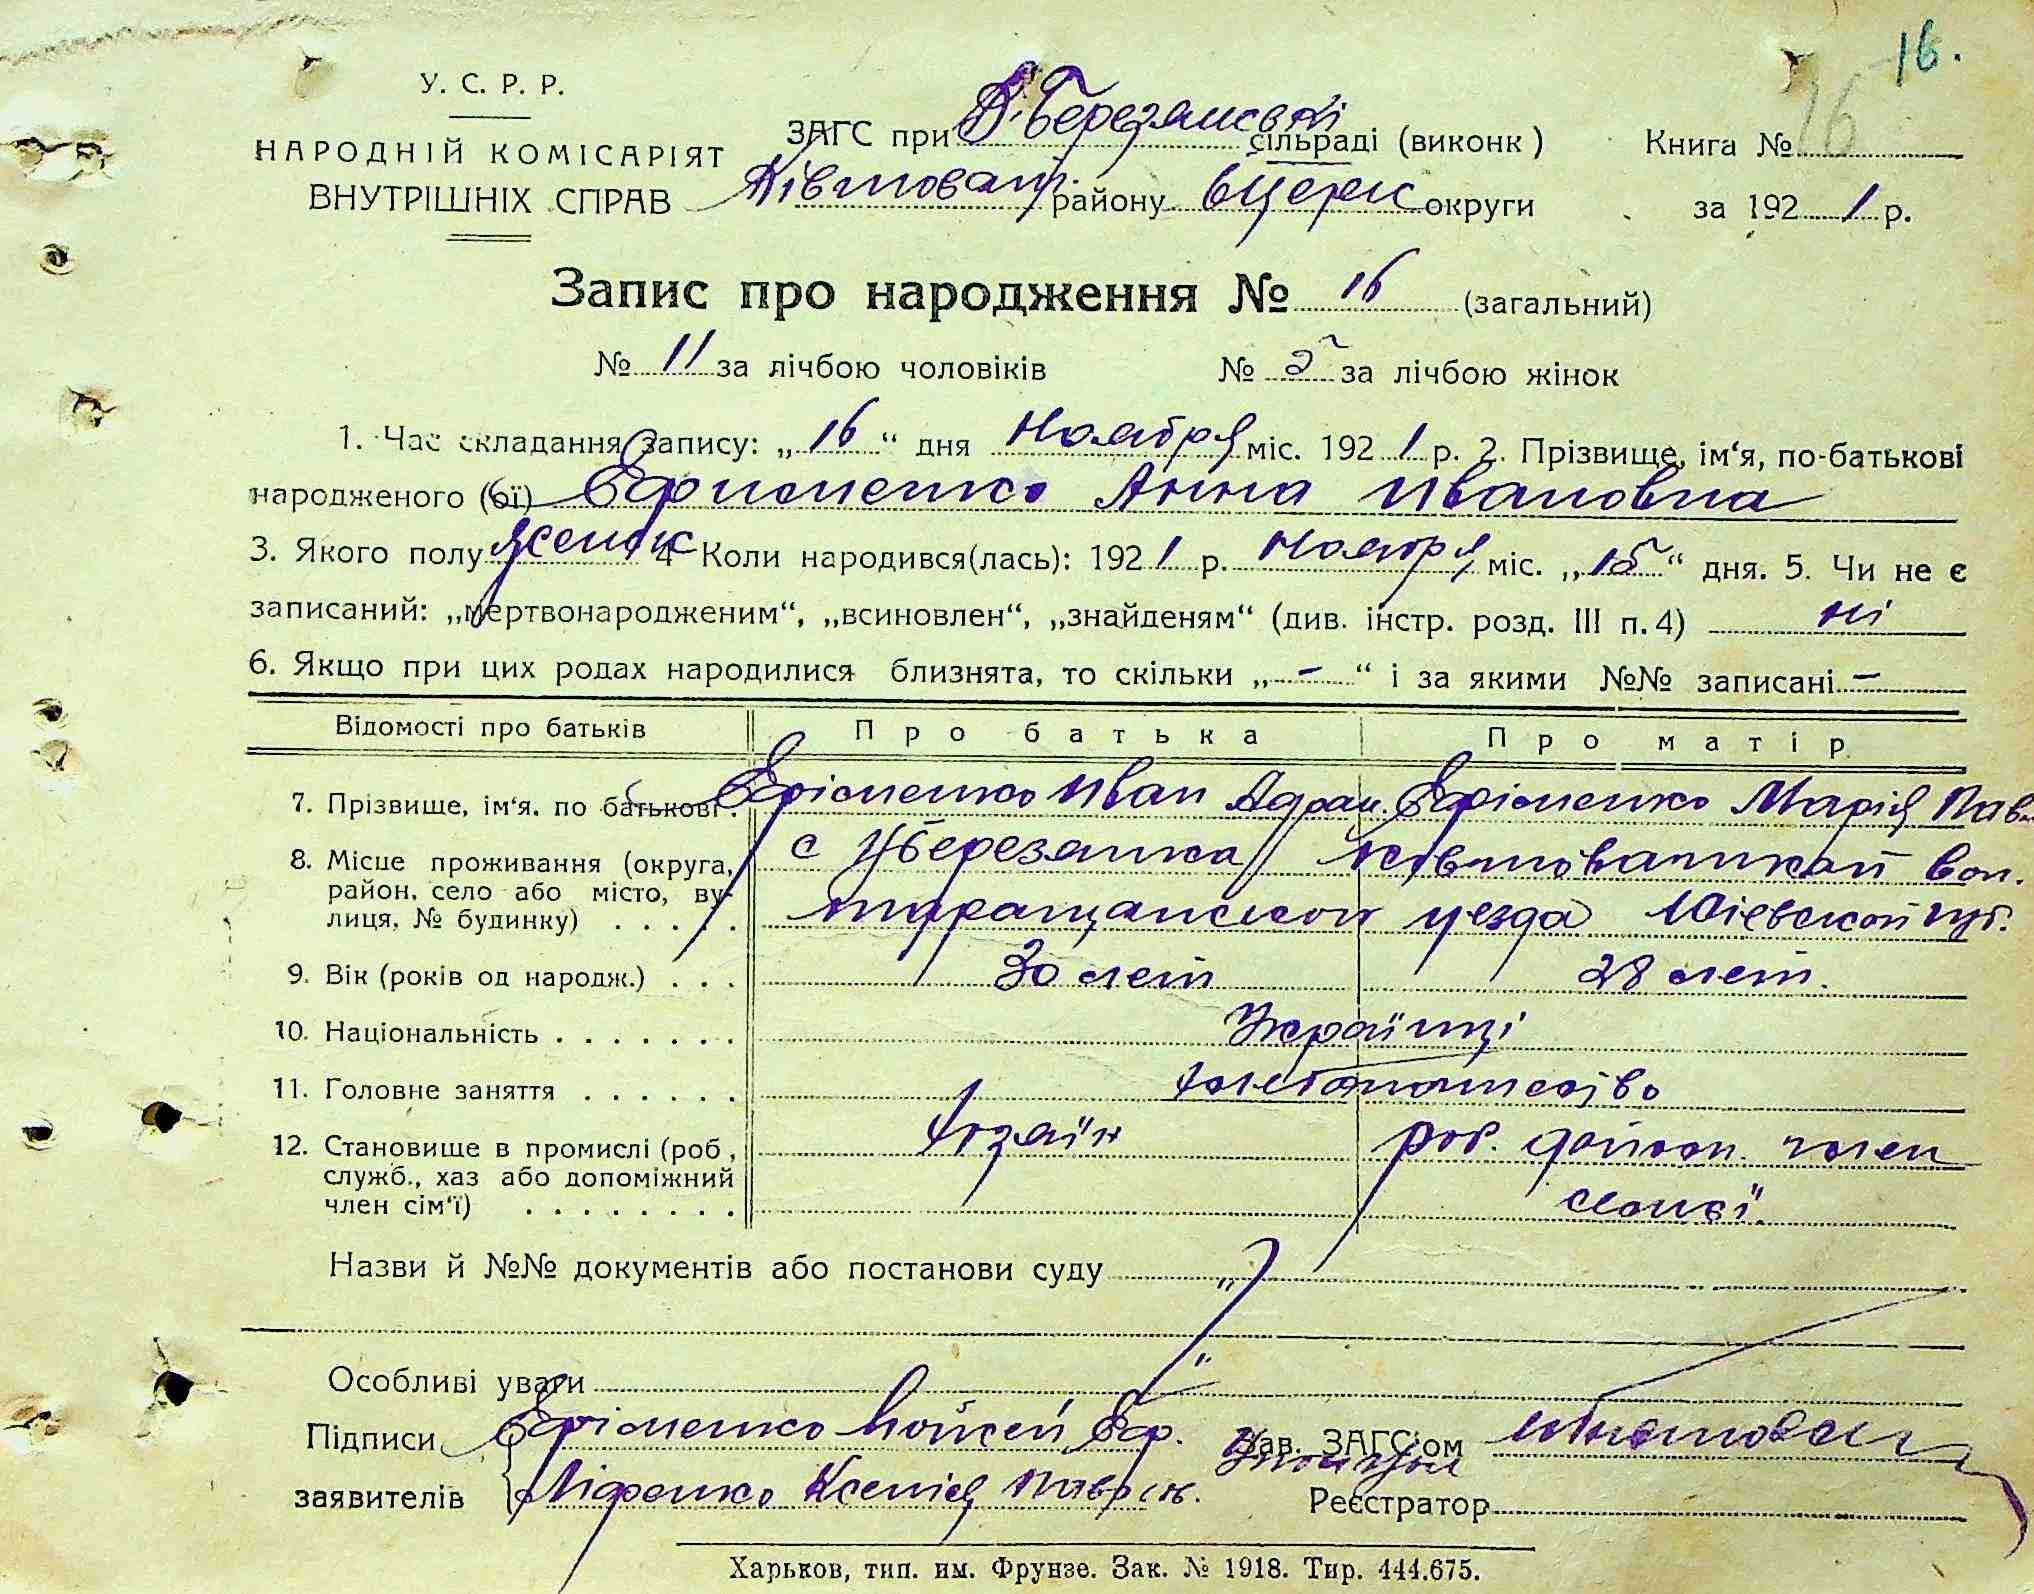 16.
У. С. Р. Р.
НАРОДНІЙ КОМІСАРІЯТ
ВНУТРІШНІХ СПРАВ
ЗАГС при В-Березянські сільраді (виконк)
району БЦерк округи
Книга № 16
за 1921 р.
Запис про народження № 16 (загальний)
№ 11 за лічбою чоловіків № 5 за лічбою жінок
1. Час складання запису: „16“ дня Ноября міс. 1921 р. 2. Прізвище, ім‘я, по-батькові
народженого (ої) Ефименко Анна Ивановна
3. Якого полу женск 4 Коли народився(лась): 1921 р. Ноября міс. „15“ дня. 5. Чи не є
записаний: „мертвонародженим“, „всиновлен“, „знайденям“ (див. інстр. розд. III п. 4) ні
6. Якщо при цих родах народилися близнята, то скільки „-“ і за якими №№ записані -
Відомості про батьків Про батька Про матір
7. Прізвище, ім‘я, по батькові. Єфіменко Иван Адрам. Єфіменко Марія Пав
8. Місце проживання (округа, район, село або місто, вулиця, № будинку) с Березанка вол.
Таращанской уезда Кіевской губ.
9. Вік (років од народж.) 30 лет 28 лет.
10. Національність Українці
11. Головне заняття хлебопашество
12. Становище в промислі (роб., служб., хаз або допоміжний член сім‘ї) Хозяїн роб. допом. член
сімьї.
Назви й №№ документів або постанови суду „
Особливі уваги „
Підписи Єфіменко Мойсей Єф. Зав. ЗАГС‘ом
заявителів Ксенія Реєстратор
Харьков, тип. им. Фрунзе. Зак. № 1918. Тир. 444.675.